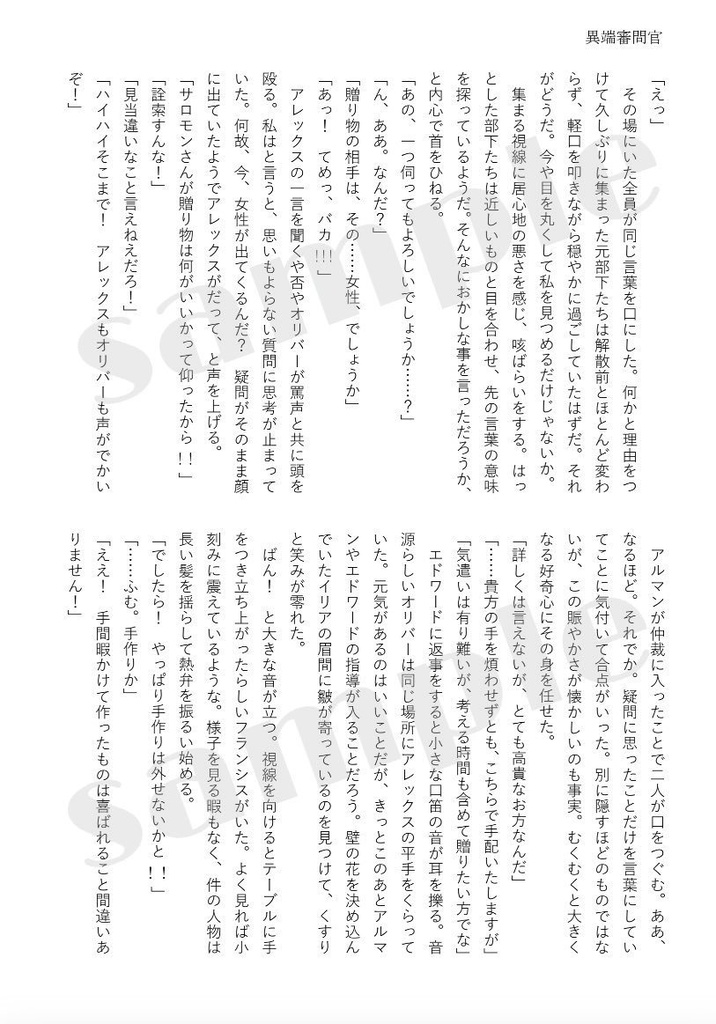 異端審問官
「えっ」
　その場にいた全員が同じ言葉を口にした。何かと理由をつ
けて久しぶりに集まった元部下たちは解散前とほとんど変わ
らず、軽口を叩きながら穏やかに過ごしていたはずだ。それ
がどうだ。今や目を丸くして私を見つめるだけじゃないか。
　集まる視線に居心地の悪さを感じ、咳ばらいをする。はっ
とした部下たちは近しいものと目を合わせ、先の言葉の意味
を探っているようだ。そんなにおかしな事を言っただろうか、
と内心で首をひねる。
「あの、一つ伺ってもよろしいでしょうか……？」
「ん、ああ。なんだ？」
「贈り物の相手は、その……女性、でしょうか」
「あっ！　てめっ、バカ!!!」
　アレックスの一言を聞くや否やオリバーが罵声と共に頭を
殴る。私はと言うと、思いもよらない質問に思考が止まって
いた。何故、今、女性が出てくるんだ？　疑問がそのまま顔
に出ていたようでアレックスがだって、と声を上げる。
「サロモンさんが贈り物は何がいいかって仰ったから!!」
「詮索すんな！」
「見当違いなこと言えねえだろ！」
「ハイハイそこまで！　アレックスもオリバーも声がでかい
ぞ！」
　アルマンが仲裁に入ったことで二人が口をつぐむ。ああ、
なるほど。それでか。疑問に思ったことだけを言葉にしてい
てことに気付いて合点がいった。別に隠すほどのものではな
いが、この賑やかさが懐かしいのも事実。むくむくと大きく
なる好奇心にその身を任せた。
「詳しくは言えないが、とても高貴なお方なんだ」
「……貴方の手を煩わせずとも、こちらで手配いたしますが」
「気遣いは有り難いが、考える時間も含めて贈りたい方でな」
　エドワードに返事をすると小さな口笛の音が耳を擽る。音
源らしいオリバーは同じ場所にアレックスの平手をくらって
いた。元気があるのはいいことだが、きっとこのあとアルマ
ンやエドワードの指導が入ることだろう。壁の花を決め込ん
でいたイリアの眉間に皺が寄っているのを見つけて、くすり
と笑みが零れた。
　ばん！　と大きな音が立つ。視線を向けるとテーブルに手
をつき立ち上がったらしいフランシスがいた。よく見れば小
刻みに震えているような。様子を見る暇もなく、件の人物は
長い髪を揺らして熱弁を振るい始める。
「でしたら！　やっぱり手作りは外せないかと!!」
「……ふむ。手作りか」
「ええ！　手間暇かけて作ったものは喜ばれること間違いあ
りません！」
sample
sample